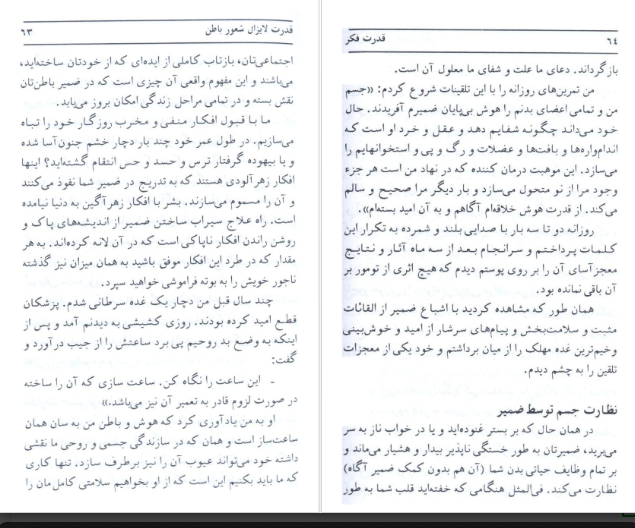 ۶۳ قدرت لایزال شعور باطن
اجتماعی‌تان، بازتاب کاملی از ایده‌ای که از خودتان ساخته‌اید،
می‌باشند و این مفهوم واقعی آن چیزی است که در ضمیر باطن‌تان
نقش بسته و در تمامی مراحل زندگی امکان بروز می‌یابد.
ما با قبول افکار منفی و مخرب روزگار خود را تباه
می‌سازیم. در طول عمر خود چند بار دچار خشم جنون‌آسا شده
و یا بیهوده گرفتار ترس و حسد و حس انتقام گشته‌اید؟ اینها
افکار زهرآلودی هستند که به تدریج در ضمیر شما نفوذ می‌کنند
و آن را مسموم می‌سازند. بشر با افکار زهرآگین به دنیا نیامده
است. راه علاج سیراب ساختن ضمیر از اندیشه‌های پاک و
روشن راندن افکار ناپاکی است که در آن لانه کرده‌اند. به هر
مقدار که در طرد این افکار موفق باشید به همان میزان نیز گذشته
ناجور خویش را به بوته فراموشی خواهید سپرد.
چند سال قبل من دچار یک غده سرطانی شدم. پزشکان
قطع امید کرده بودند. روزی کشیشی به دیدنم آمد و پس از
اینکه به وضع بد روحیم پی برد ساعتش را از جیب درآورد و
گفت:
ـ این ساعت را نگاه کن. ساعت سازی که آن را ساخته
در صورت لزوم قادر به تعمیر آن نیز می‌باشد.»
او به من یادآوری کرد که هوش و باطن من به سان همان
ساعت‌ساز است و همان که در سازندگی جسمی و روحی ما نقشی
داشته خود می‌تواند عیوب آن را نیز برطرف سازد. تنها کاری
که ما باید بکنیم این است که از او بخواهیم سلامتی کامل‌مان را
۶۴ قدرت فکر
بازگرداند. دعای ما علت و شفای ما معلول آن است.
من تمرین‌های روزانه را با این تلقینات شروع کردم: «جسم
من و تمامی اعضای بدنم را هوش بی‌پایان ضمیرم آفریدند. حال
خود می‌داند چگونه شفایم دهد و عقل و خرد او است که
اندام‌واره‌ها و بافت‌ها و عضلات و رگ و پی و استخوانهایم را
می‌سازد. این موهبت درمان کننده که در نهاد من است هر جزء
وجود مرا از نو متحول می‌سازد و بار دیگر مرا صحیح و سالم
می‌کند. از قدرت هوش خلاقه‌ام آگاهم و به آن امید بسته‌ام».
روزانه دو تا سه بار با صدایی بلند و شمرده به تکرار این
کلمات پرداختم و سرانجام بعد از سه ماه آثار و نتایج
معجزآسای آن را بر روی پوستم دیدم که هیچ اثری از تومور بر
آن باقی نمانده بود.
همان طور که مشاهده کردید با اشباع ضمیر از القائات
مثبت و سلامت‌بخش و پیام‌های سرشار از امید و خوش‌بینی
وخیم‌ترین غده مهلک را از میان برداشتم و خود یکی از معجزات
تلقین را به چشم دیدم.
نظارت جسم توسط ضمیر
در همان حال که بر بستر غنوده‌اید و یا در خواب ناز به سر
می‌برید، ضمیرتان به طور خستگی ناپذیر بیدار و هشیار می‌ماند و
بر تمام وظایف حیاتی بدن شما (آن هم بدون کمک ضمیر آگاه)
نظارت می‌کند. فی‌المثل هنگامی که خفته‌اید قلب شما به طور